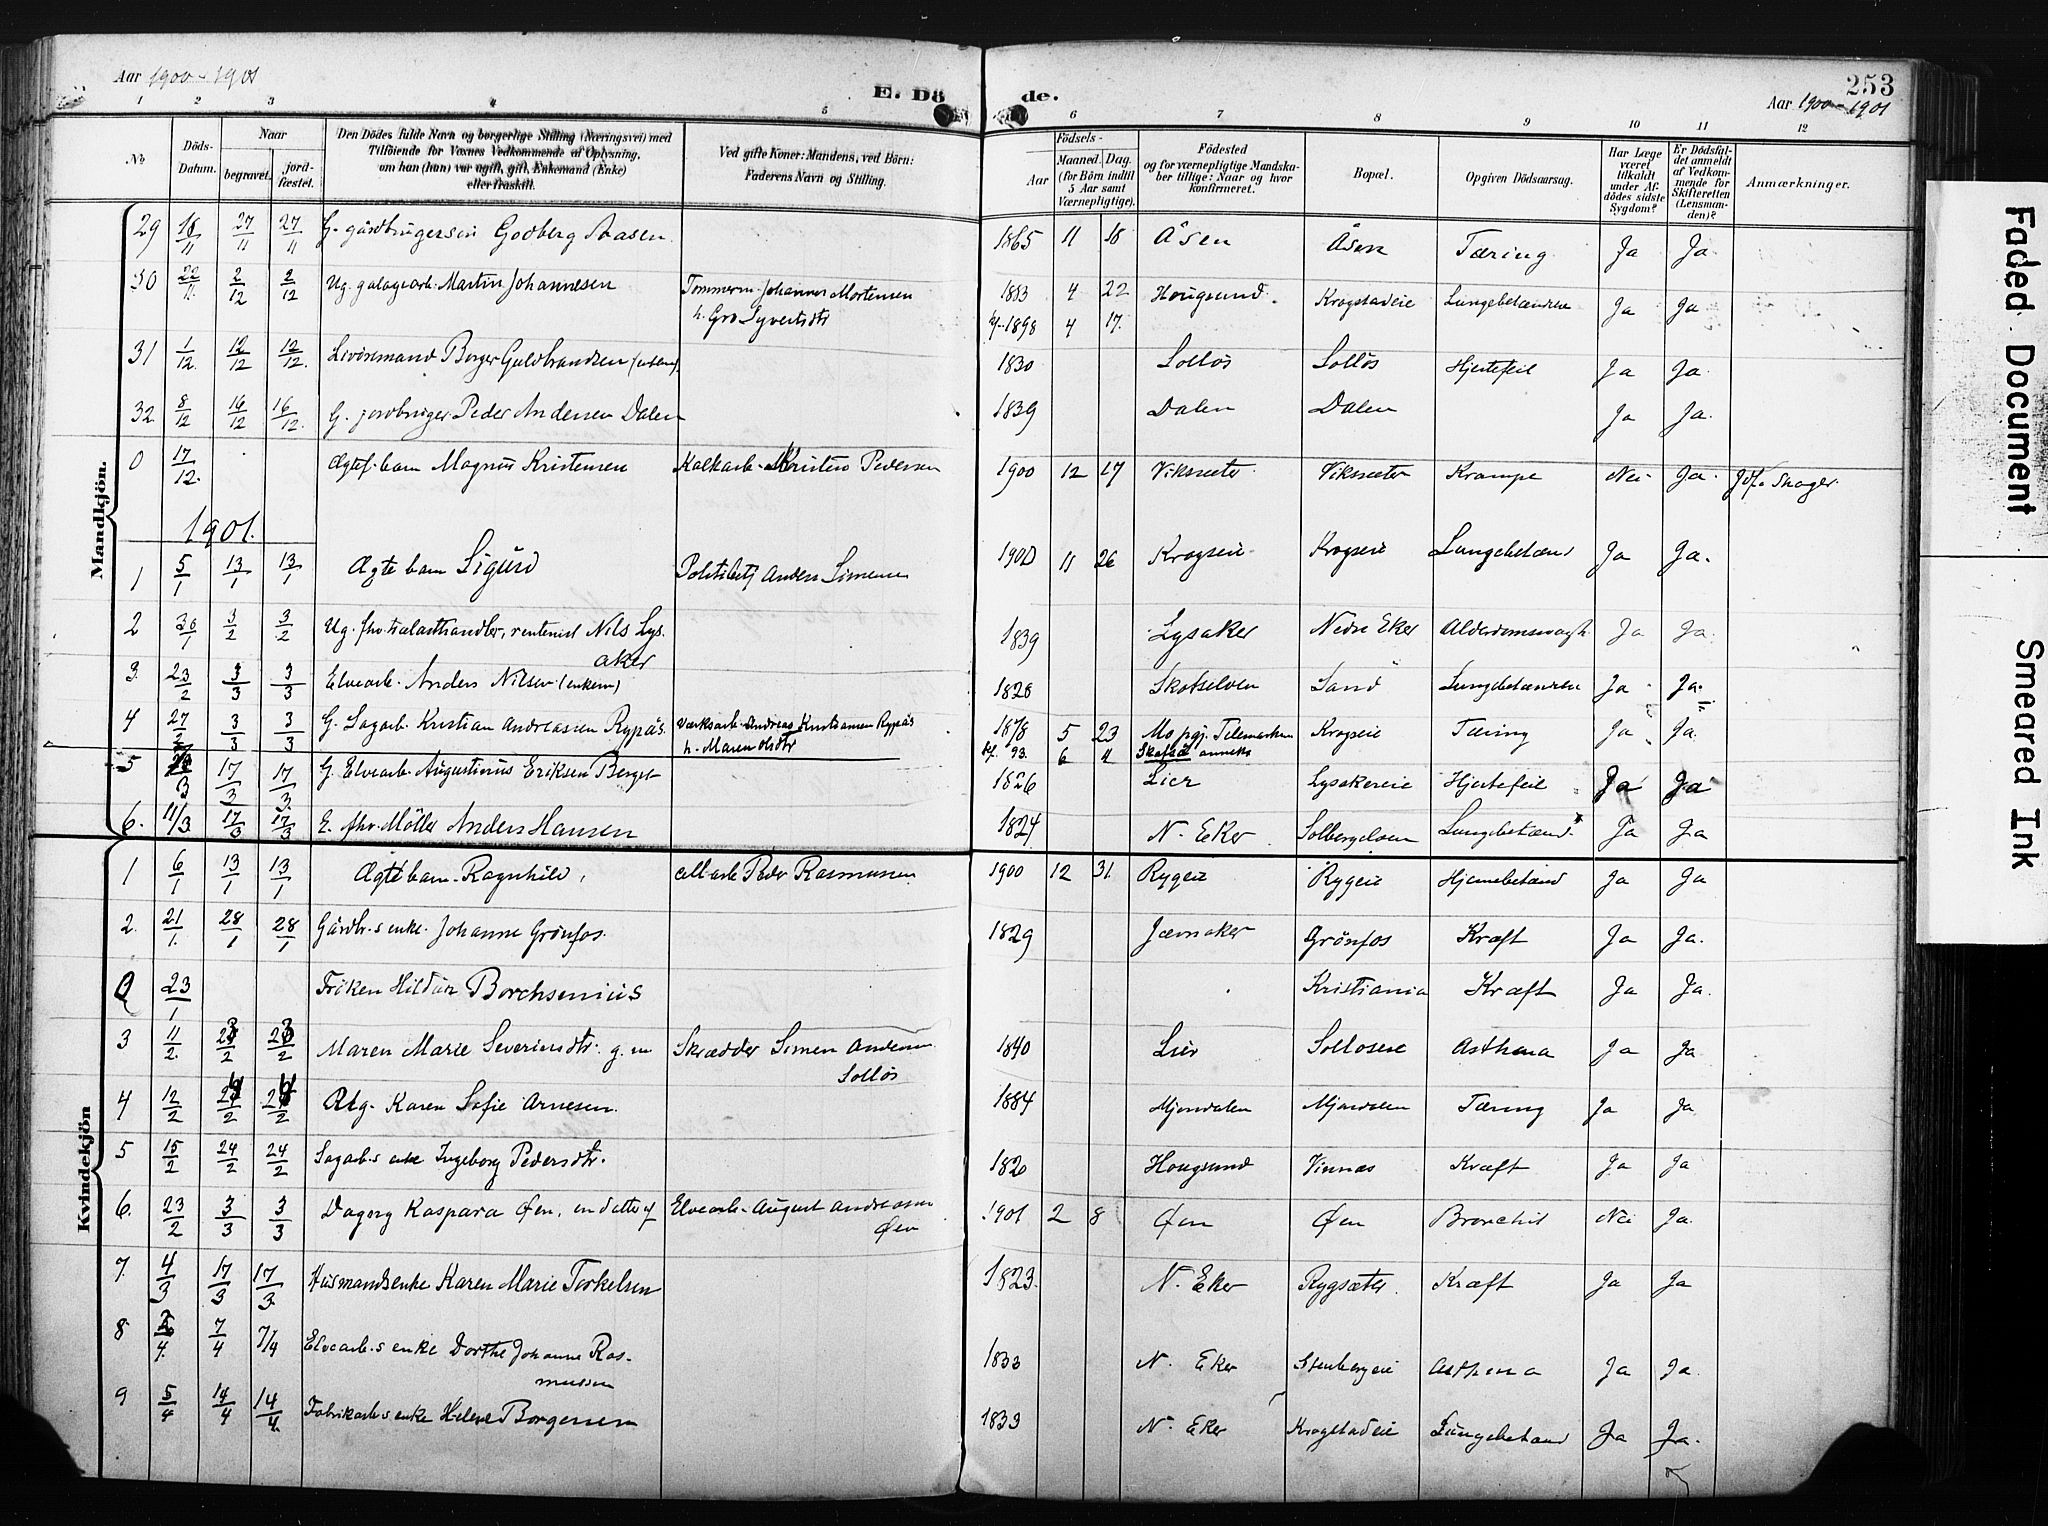 Aar 1900-1901
E. Dö
de.
253
Aar 1900-1901
1 2 3 4 5 6 7 8 9 10 11 12
No
Döds-Datum.
Naar
begravet.
jordfæstet.
Den Dödes fulde Navn og borgerlige Stilling (Næringsvei) med
Tilföiende for Vævnes Vedkommende af Oplysning,
om han (hun) var ugift, gift, Enkemand (Enke)
eller fraskilt.
Ved gifte Koner: Mandens, ved Börn:
Faderens Navn og Stilling.
Födsels-
Aar
Maaned. Dag.
(for Börn indtil
5 Aar samt
Værnepligtige).
Födested
og for værnepligtige Mandska-
ber tillige: Naar og hvor
konfirmeret.
Bopæl.
Opgiven Dödsaarsag.
Har Læge
været
tilkaldt
under Af-
dödes sidste
Sygdom?
Er Dödsfal-
det anmeldt
af Vedkom-
mende for
Skifteretten
(Lensman-
den)?
Anmærkninger.
Mandkjön.
29 18/11 27/11 27/11 G. gårdbrugersön Godberg Aasen 1865 11 18 Åsen Åsen Tæring Ja Ja.
30 22/11 2/12 2/12 Ug. Martin Johannesen Tømmerm. Johannes Mortensen 1883 4 22 Hougsund. Krogstadeie Lungebetændelse Ja Ja
h. Gro Syvertsdtr kf. 1898 4 17.
31 1/12 12/12 12/12 Livöremand Borger Guldbrandsen (enkem). 1830 Solløs Solløs Hjertefeil Ja Ja.
32 8/12 16/12 16/12. G. jordbruger Peder Andersen Dalen 1839 Dalen Dalen Ja Ja.
0 17/12. Ægtef. barn Magnus Kristensen Kalkarb. Kristen Pedersen 1900 12 17 Viksæter Viksæter Krampe Nei Ja. Jdf. Skoger.
1901.
1 5/1 13/1 13/1 Ægte barn Sigurd Politibetj. Anders Simensen 1900 11 26 Krogseie Krogseie Lungebetænd Ja Ja.
2 30/1 3/2 3/2 Ug. fhv. trælasthandler, rentenist Nils Lys- 1839 Lysaker Nedre Eker Alderdomssvagh. Ja Ja.
aker
3. 23/2 3/3 3/3 Elvearb. Anders Nilsen (enkem) 1826 Skotselven Sand Lungebetændelse Ja Ja.
4 27/2 3/3 3/3 G. Sagarb. Kristian Andreassen Rypås. Værksarb. Andreas Kristiansen Rypås 1878 5 23 Mo pgj. Telemarken Krogseie Tæring Ja Ja.
h. Maren Olsdtr kf. 93. 6 11 Skafså anneks
5 3 17/3 17/3. G. Elvearb. Augustinus Eriksen Berget 1826 Lier Lysakereie Hjertefeil Ja Ja
6. 11/3 17/3 17/3 E. fhv. Möller Anders Hansen 1824 N. Eker Solbergelven Lungebetænd. Ja Ja
Kvindekjön
1 6/1 13/1 13/1 Ægte barn Ragnhild. arb. Peder Rasmussen 1900 12 31. Rygeie Rygeie Hjernebetænd Ja Ja
2. 21/1. 28/1 28/1 Gårdbr.s enke Johanne Grönfos. 1829 Jævnaker Grönfos Kræft Ja Ja.
0 23/1 Fröken Hildur Borchsenius Kristiania Kræft Ja Ja.
3 11/2. 23/2 23/2 Maren Marie Severinsdtr. g. m Skrædder Simen Andersen 1840 Lier Solloseie Asthma Ja Ja
Solløs
4 12/2 24/2 24/2 Ug. Karen Sofie Arnesen. 1884 Mjøndalen Mjøndalen Tæring Ja Ja
5 15/2 24/2 24/2 Sagarb.s enke Ingeborg Pedersdtr. 1820 Hougsund Vinnæs Kræft Ja Ja
6. 23/2 3/3 3/3 Dagny Kaspara Øen, en datter af Elvearb. August Andreassen 1901 2 8 Øen Øen Bronchit Nei Ja.
Øen
7. 4/3 17/3 17/3. Husmandsenke Karen Marie Torkelsen 1823. N. Eker Rygsæter. Kræft Ja Ja
8 2/4. 7/4 7/4 Elvearb.s enke Dorthe Johanne Ras- 1833 N. Eker Stenbergeie Asthma Ja Ja.
mussen
9 5/4 14/4 14/4. Fabrikarb.s enke Helene Borgersen 1833 N. Eker Krogstadeie Lungebetænd Ja Ja.
Faded Document
Smeared Ink